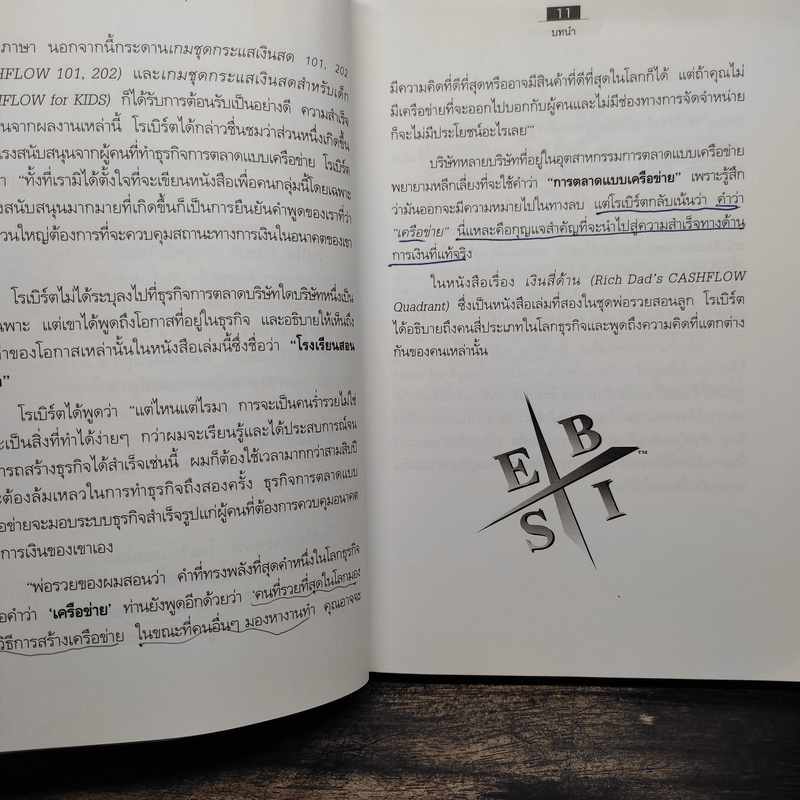 ภาษา นอกจากนี้กระดานเกมชุดกระแสเงินสด 101, 202
HFLOW 101, 202) และเกมชุดกระแสเงินสดสำหรับเด็ก
FLOW for KIDS) ก็ได้รับการต้อนรับเป็นอย่างดี ความสำเร็จ
นจากผลงานเหล่านี้ โรเบิร์ตได้กล่าวชื่นชมว่าส่วนหนึ่งเกิดขึ้น
รงสนับสนุนจากผู้คนที่ทำธุรกิจการตลาดแบบเครือข่าย โรเบิร์ต
า "ทั้งที่เรามิได้ตั้งใจที่จะเขียนหนังสือเพื่อคนกลุ่มนี้โดยเฉพาะ
งสนับสนุนมากมายที่เกิดขึ้นก็เป็นการยืนยันคำพูดของเราที่ว่า
วนใหญ่ต้องการที่จะควบคุมสถานะทางการเงินในอนาคตของเขา
โรเบิร์ตไม่ได้ระบุลงไปที่ธุรกิจการตลาดบริษัทใดบริษัทหนึ่งเป็น
ฉพาะ แต่เขาได้พูดถึงโอกาสที่อยู่ในธุรกิจ และอธิบายให้เห็นถึง
าของโอกาสเหล่านั้นในหนังสือเล่มนี้ซึ่งชื่อว่า "โรงเรียนสอน
"
โรเบิร์ตได้พูดว่า "แต่ไหนแต่ไรมา การจะเป็นคนร่ำรวยไม่ใช่
ะเป็นสิ่งที่ทำได้ง่ายๆ กว่าผมจะเรียนรู้และได้ประสบการณ์จน
ารถสร้างธุรกิจได้สำเร็จเช่นนี้ ผมก็ต้องใช้เวลามากกว่าสามสิบปี
ะต้องล้มเหลวในการทำธุรกิจถึงสองครั้ง ธุรกิจการตลาดแบบ
อข่ายจะมอบระบบธุรกิจสำเร็จรูปแก่ผู้คนที่ต้องการควบคุมอนาคต
การเงินของเขาเอง
"พ่อรวยของผมสอนว่า คำที่ทรงพลังที่สุดคำหนึ่งในโลกธุรกิจ
อคำว่า 'เครือข่าย' ท่านยังพูดอีกด้วยว่า 'คนที่รวยที่สุดในโลกมอง
วิธีการสร้างเครือข่าย ในขณะที่คนอื่นๆ มองหางานทำ คุณอาจจะ
11
บทนำ
มีความคิดที่ดีที่สุดหรืออาจมีสินค้าที่ดีที่สุดในโลกก็ได้ แต่ถ้าคุณไม่
มีเครือข่ายที่จะออกไปบอกกับผู้คนและไม่มีช่องทางการจัดจำหน่าย
ก็จะไม่มีประโยชน์อะไรเลย'"
บริษัทหลายบริษัทที่อยู่ในอุตสาหกรรมการตลาดแบบเครือข่าย
พยายามหลีกเลี่ยงที่จะใช้คำว่า "การตลาดแบบเครือข่าย" เพราะรู้สึก
ว่ามันออกจะมีความหมายไปในทางลบ แต่โรเบิร์ตกลับเน้นว่า คำว่า
"เครือข่าย" นี่แหละคือกุญแจสำคัญที่จะนำไปสู่ความสำเร็จทางด้าน
การเงินที่แท้จริง
ในหนังสือเรื่อง เงินสี่ด้าน (Rich Dad's CASHFLOW
Quadrant) ซึ่งเป็นหนังสือเล่มที่สองในชุดพ่อรวยสอนลูก โรเบิร์ต
ได้อธิบายถึงคนสี่ประเภทในโลกธุรกิจและพูดถึงความคิดที่แตกต่าง
กันของคนเหล่านั้น
E B
S I
™